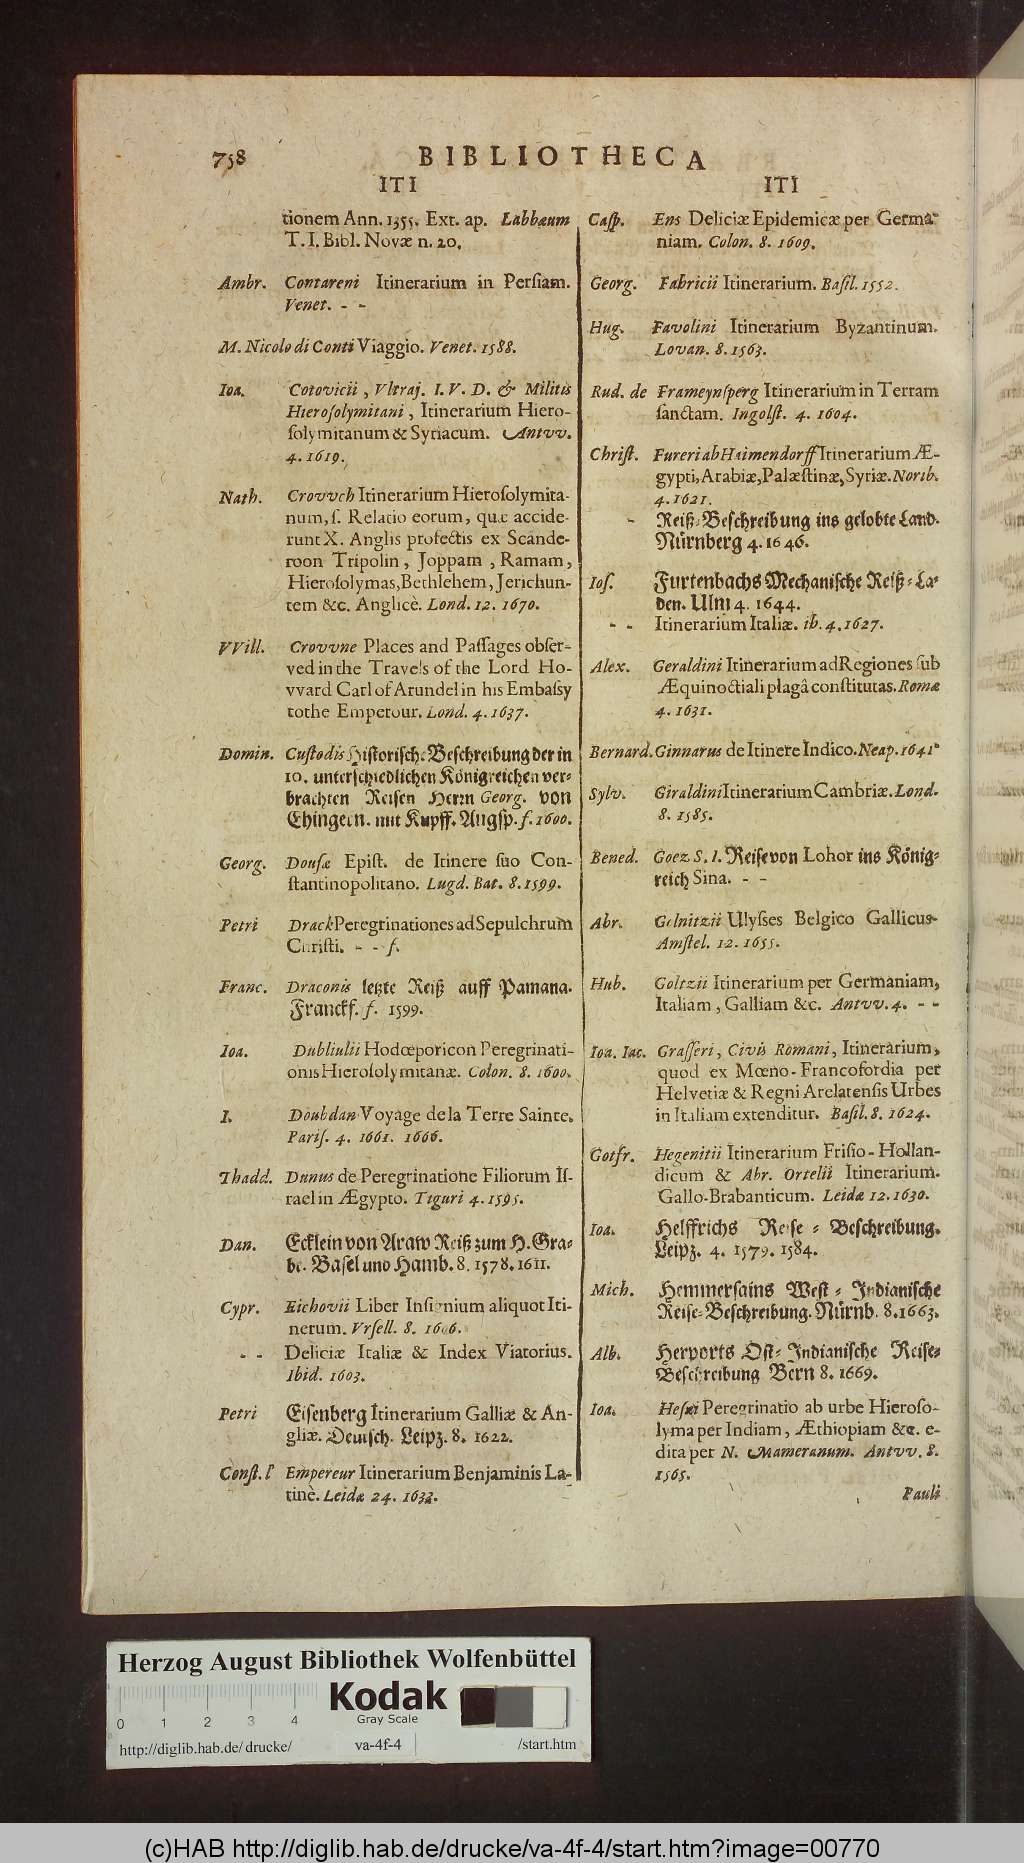 758 BIBLIOTHECA
ITI
tionem Ann. 1355. Ext. ap. Labbæum
T. I. Bibl. Novæ n. 20.
Ambr. Contareni Itinerarium in Persiam.
Venet. - -
M. Nicolo di Conti Viaggio. Venet. 1588.
Ioa. Cotovicii, Vltraj. I. V. D. & Militis
Hierosolymitani, Itinerarium Hiero-
solymitanum & Syriacum. Antvv.
4. 1619.
Nath. Crovvch Itinerarium Hierosolymita-
num, s. Relatio eorum, quæ accide-
runt X. Anglis profectis ex Scande-
roon Tripolin, Joppam, Ramam,
Hierosolymas, Bethlehem, Jerichun-
tem &c. Anglicè. Lond. 12. 1670.
VVill. Crovvne Places and Passages obser-
ved in the Travels of the Lord Ho-
vvard Carl of Arundel in his Embassy
tothe Emperour. Lond. 4. 1637.
Domin. Custodis Historische Beschreibung der in
10. unterschiedlichen Königreichen ver-
brachten Reisen Herrn Georg. von
Ehingern. mit Kupff. Augsp. f. 1600.
Georg. Dousæ Epist. de Itinere suo Con-
stantinopolitano. Lugd. Bat. 8. 1599.
Petri Drack Peregrinationes ad Sepulchrum
Christi. - - f.
Franc. Draconis letzte Reiß auff Pamana.
Franckf. f. 1599.
Ioa. Dubliulii Hodœporicon Peregrinati-
onis Hierosolymitanæ. Colon. 8. 1600.
I. Doubdan Voyage de la Terre Sainte.
Paris. 4. 1661. 1666.
Thadd. Dunus de Peregrinatione Filiorum Is-
rael in Ægypto. Tiguri 4. 1595.
Dan. Ecklein von Araw Reiß zum H. Gra-
be. Basel und Hamb. 8. 1578. 1611.
Cypr. Eichovii Liber Insignium aliquot Iti-
nerum. Vrsell. 8. 1606.
- - Deliciæ Italiæ & Index Viatorius.
Ibid. 1603.
Petri Eisenberg Itinerarium Galliæ & An-
gliæ. Deutsch. Leipz. 8. 1622.
Const. l' Empereur Itinerarium Benjaminis La-
tinè. Leidæ 24. 1633.
ITI
Casp. Ens Deliciæ Epidemicæ per Germa-
niam. Colon. 8. 1609.
Georg. Fabricii Itinerarium. Basil. 1552.
Hug. Favolini Itinerarium Byzantinum.
Lovan. 8. 1563.
Rud. de Frameynsperg Itinerarium in Terram
sanctam. Ingolst. 4. 1604.
Christ. Fureri ab Haimendorff Itinerarium Æ-
gypti, Arabiæ, Palæstinæ, Syriæ. Norib.
4. 1621.
- Reiß-Beschreibung ins gelobte Land.
Nürnberg 4. 1646.
Ios. Furtenbachs Mechanische Reiß-La-
den. Ulm 4. 1644.
- - Itinerarium Italiæ. ib. 4. 1627.
Alex. Geraldini Itinerarium ad Regiones sub
Æquinoctiali plagâ constitutas. Romæ
4. 1631.
Bernard. Ginnarus de Itinere Indico. Neap. 1641.
Sylv. Giraldini Itinerarium Cambriæ. Lond.
8. 1585.
Bened. Goez S. I. Reise von Lohor ins König-
reich Sina. - -
Abr. Gelnitzii Ulysses Belgico Gallicus.
Amstel. 12. 1655.
Hub. Goltzii Itinerarium per Germaniam,
Italiam, Galliam &c. Antvv. 4. - -
Ioa. Iac. Grasseri, Civis Romani, Itinerarium,
quod ex Mœno-Francofordia per
Helvetiæ & Regni Arelatensis Urbes
in Italiam extenditur. Basil. 8. 1624.
Gotfr. Hegenitii Itinerarium Frisio-Hollan-
dicum & Abr. Ortelii Itinerarium.
Gallo-Brabanticum. Leidæ 12. 1630.
Ioa. Helffrichs Reise-Beschreibung.
Leipz. 4. 1579. 1584.
Mich. Hemmersains West-Indianische
Reise-Beschreibung. Nürnb. 8. 1663.
Alb. Herports Ost-Indianische Reise-
Beschreibung Bern 8. 1669.
Ioa. Hesei Peregrinatio ab urbe Hieroso-
lyma per Indiam, Æthiopiam &c. e-
dita per N. Mameranum. Antvv. 8.
1565.
Pauli
Herzog August Bibliothek Wolfenbüttel
Kodak
Gray Scale
0 1 2 3 4
http://diglib.hab.de/drucke/ va-4f-4 /start.htm
(c)HAB http://diglib.hab.de/drucke/va-4f-4/start.htm?image=00770